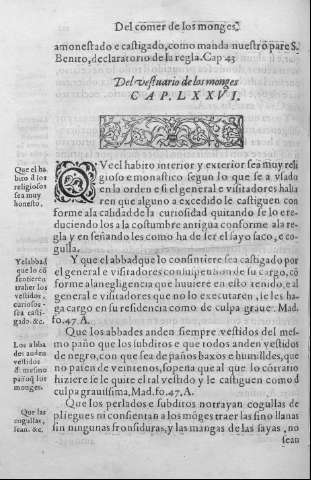 Del comer de los monges.
amonestado e castigado, como manda nuestro pare S.
Benito, declaratorio de la regla. Cap 43
Del vestuario de los monges
CAP. LXXVI.
Que el ha
bito d los
religiosos
sea muy
honesto.
QVe el habito interior y exterior sea muy reli
gioso e monastico segun lo que se a vsado
en la orden e si el general e visitadores halla
ren que alguno a excedido le castiguen con
forme ala calidad de la curiosidad quitando se lo e re-
duciendo los a la costumbre antigua conforme ala re-
gla y enseñando les como ha de ser el sayo saco, e co-
gulla.
Y el abbad
que lo cõ
sintiere
traher los
vestidos
curiosos.
sea casti-
gado. &c.
Y que el abbad que lo consintiere sea castigado por
el general e visitadores con suspension de su cargo, cõ
forme ala negligencia que huuiere en esto tenido, e al
general e visitadores que no lo executaren, se les ha-
ga cargo en su residencia como de culpa graue. Mad.
fo. 47. A.
Los abba
des anden
vestidos
dl mesmo
paño q los
monges.
Que los abbades anden siempre vestidos del mes-
mo paño que los subditos e que todos anden vestidos
de negro, con que sea de paños baxos e humildes, que
no pasen de veintenos, so pena que al que lo cõtrario
hiziere se le quite el tal vestido y le castiguen como d
culpa grauissima, Mad. fo. 47. A.
Que las
cogullas,
sean. &c.
Que los perlados e subditos no trayan cogullas de
pliegues ni consientan a los mõges traer las sino llanas
sin ningunas fronsiduras, y las mangas de las sayas, no
sean